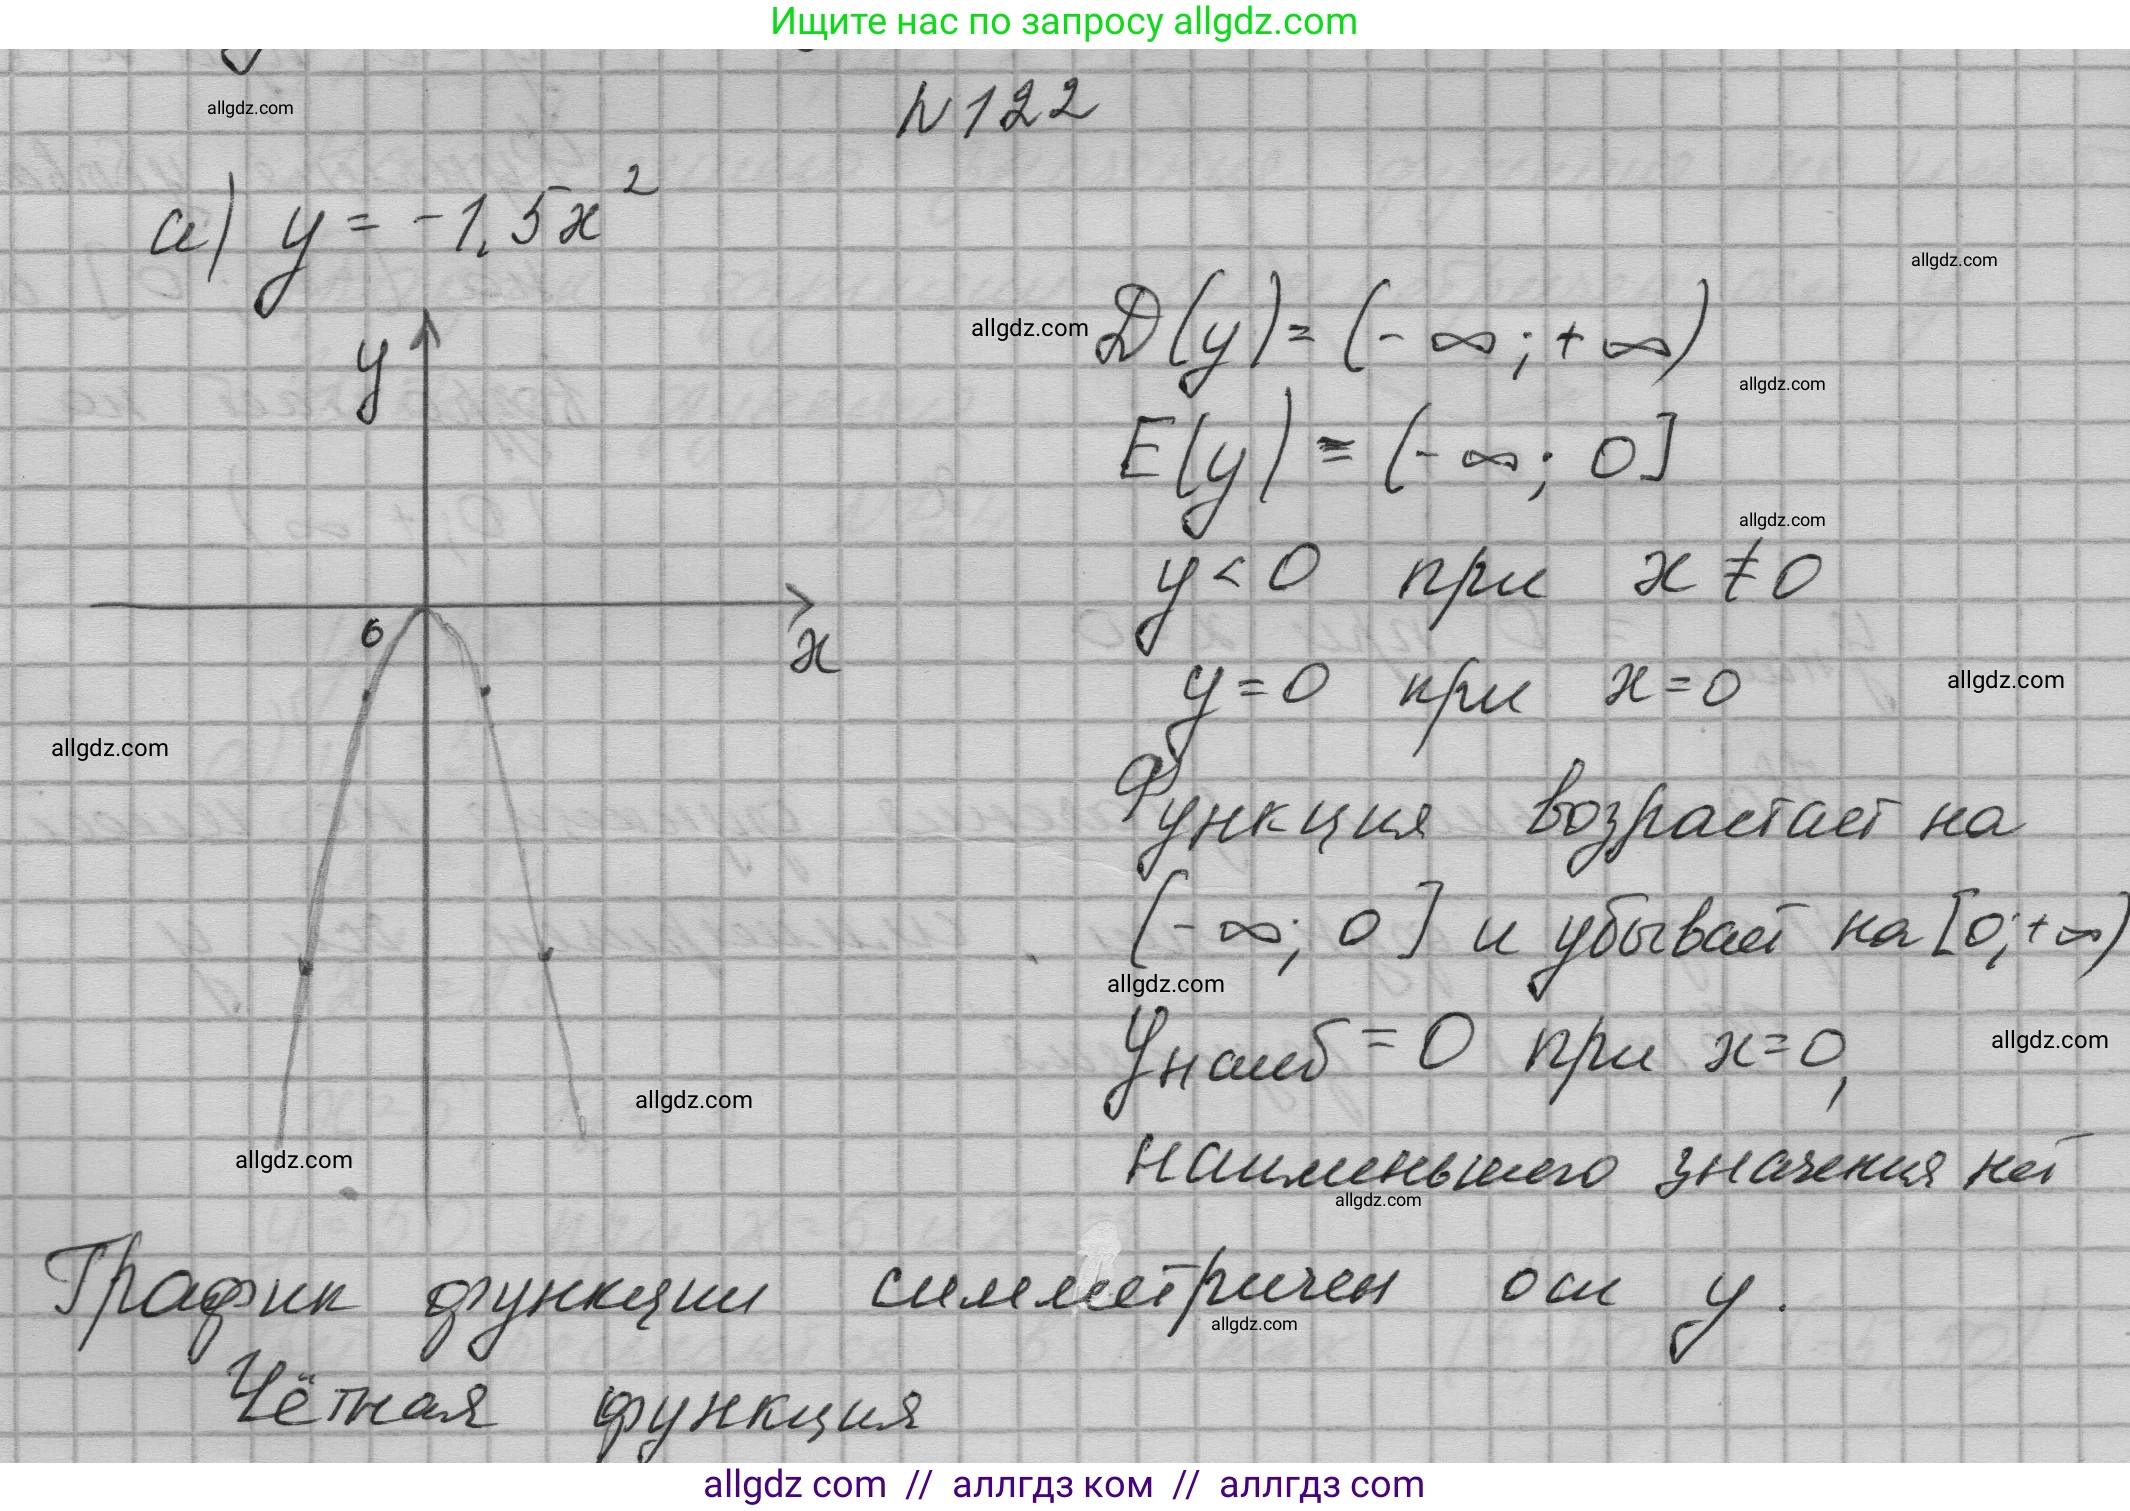 Ищите нас по запросу allgdz.com
N122
allgdz.com
а) y = -1,5x²
allgdz.com
D(y) = (-∞; +∞)
allgdz.com
y
allgdz.com
E(y) = (-∞; 0]
allgdz.com
y < 0 при x ≠ 0
0
x
y = 0 при x = 0
allgdz.com
allgdz.com
Функция возрастает на
(-∞; 0] и убывает на [0; +∞)
allgdz.com
yнаиб = 0 при x = 0,
allgdz.com
allgdz.com
наименьшего значения нет
allgdz.com
allgdz.com
График функции симметричен оси y.
allgdz.com
Чётная функция
allgdz com // аллгдз ком // аллгдз com